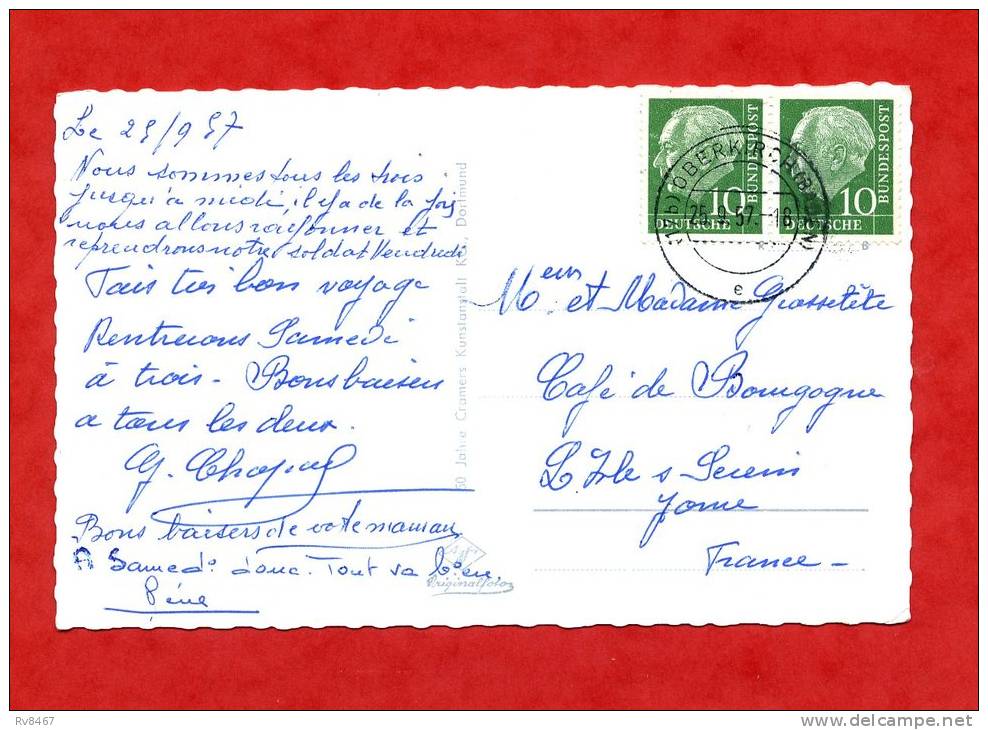 Le 25/9 57
Nous sommes tous les trois
jusqu'à midi, il y a de la joie
nous allons
et
reprendrons notre soldat Vendredi
Fais très bon voyage
Rentrerons Samedi
à trois - Bons baisers
a tous les deux.
G.
Bons baisers de votre maman
A Samedi donc. Tout va bien,
50 Jahre Cramers Kunstanstalt KG., Dortmund
Originalfoto
BUNDESPOST
10
DEUTSCHE
BUNDESPOST
10
DEUTSCHE
OBERKIRCH (BADEN)
25.9.57.-18
e
Mʳ et Madame Grossetête
Café de Bourgogne
L'Isle s Serein
Yonne
France -
Rv8467
www.delcampe.net